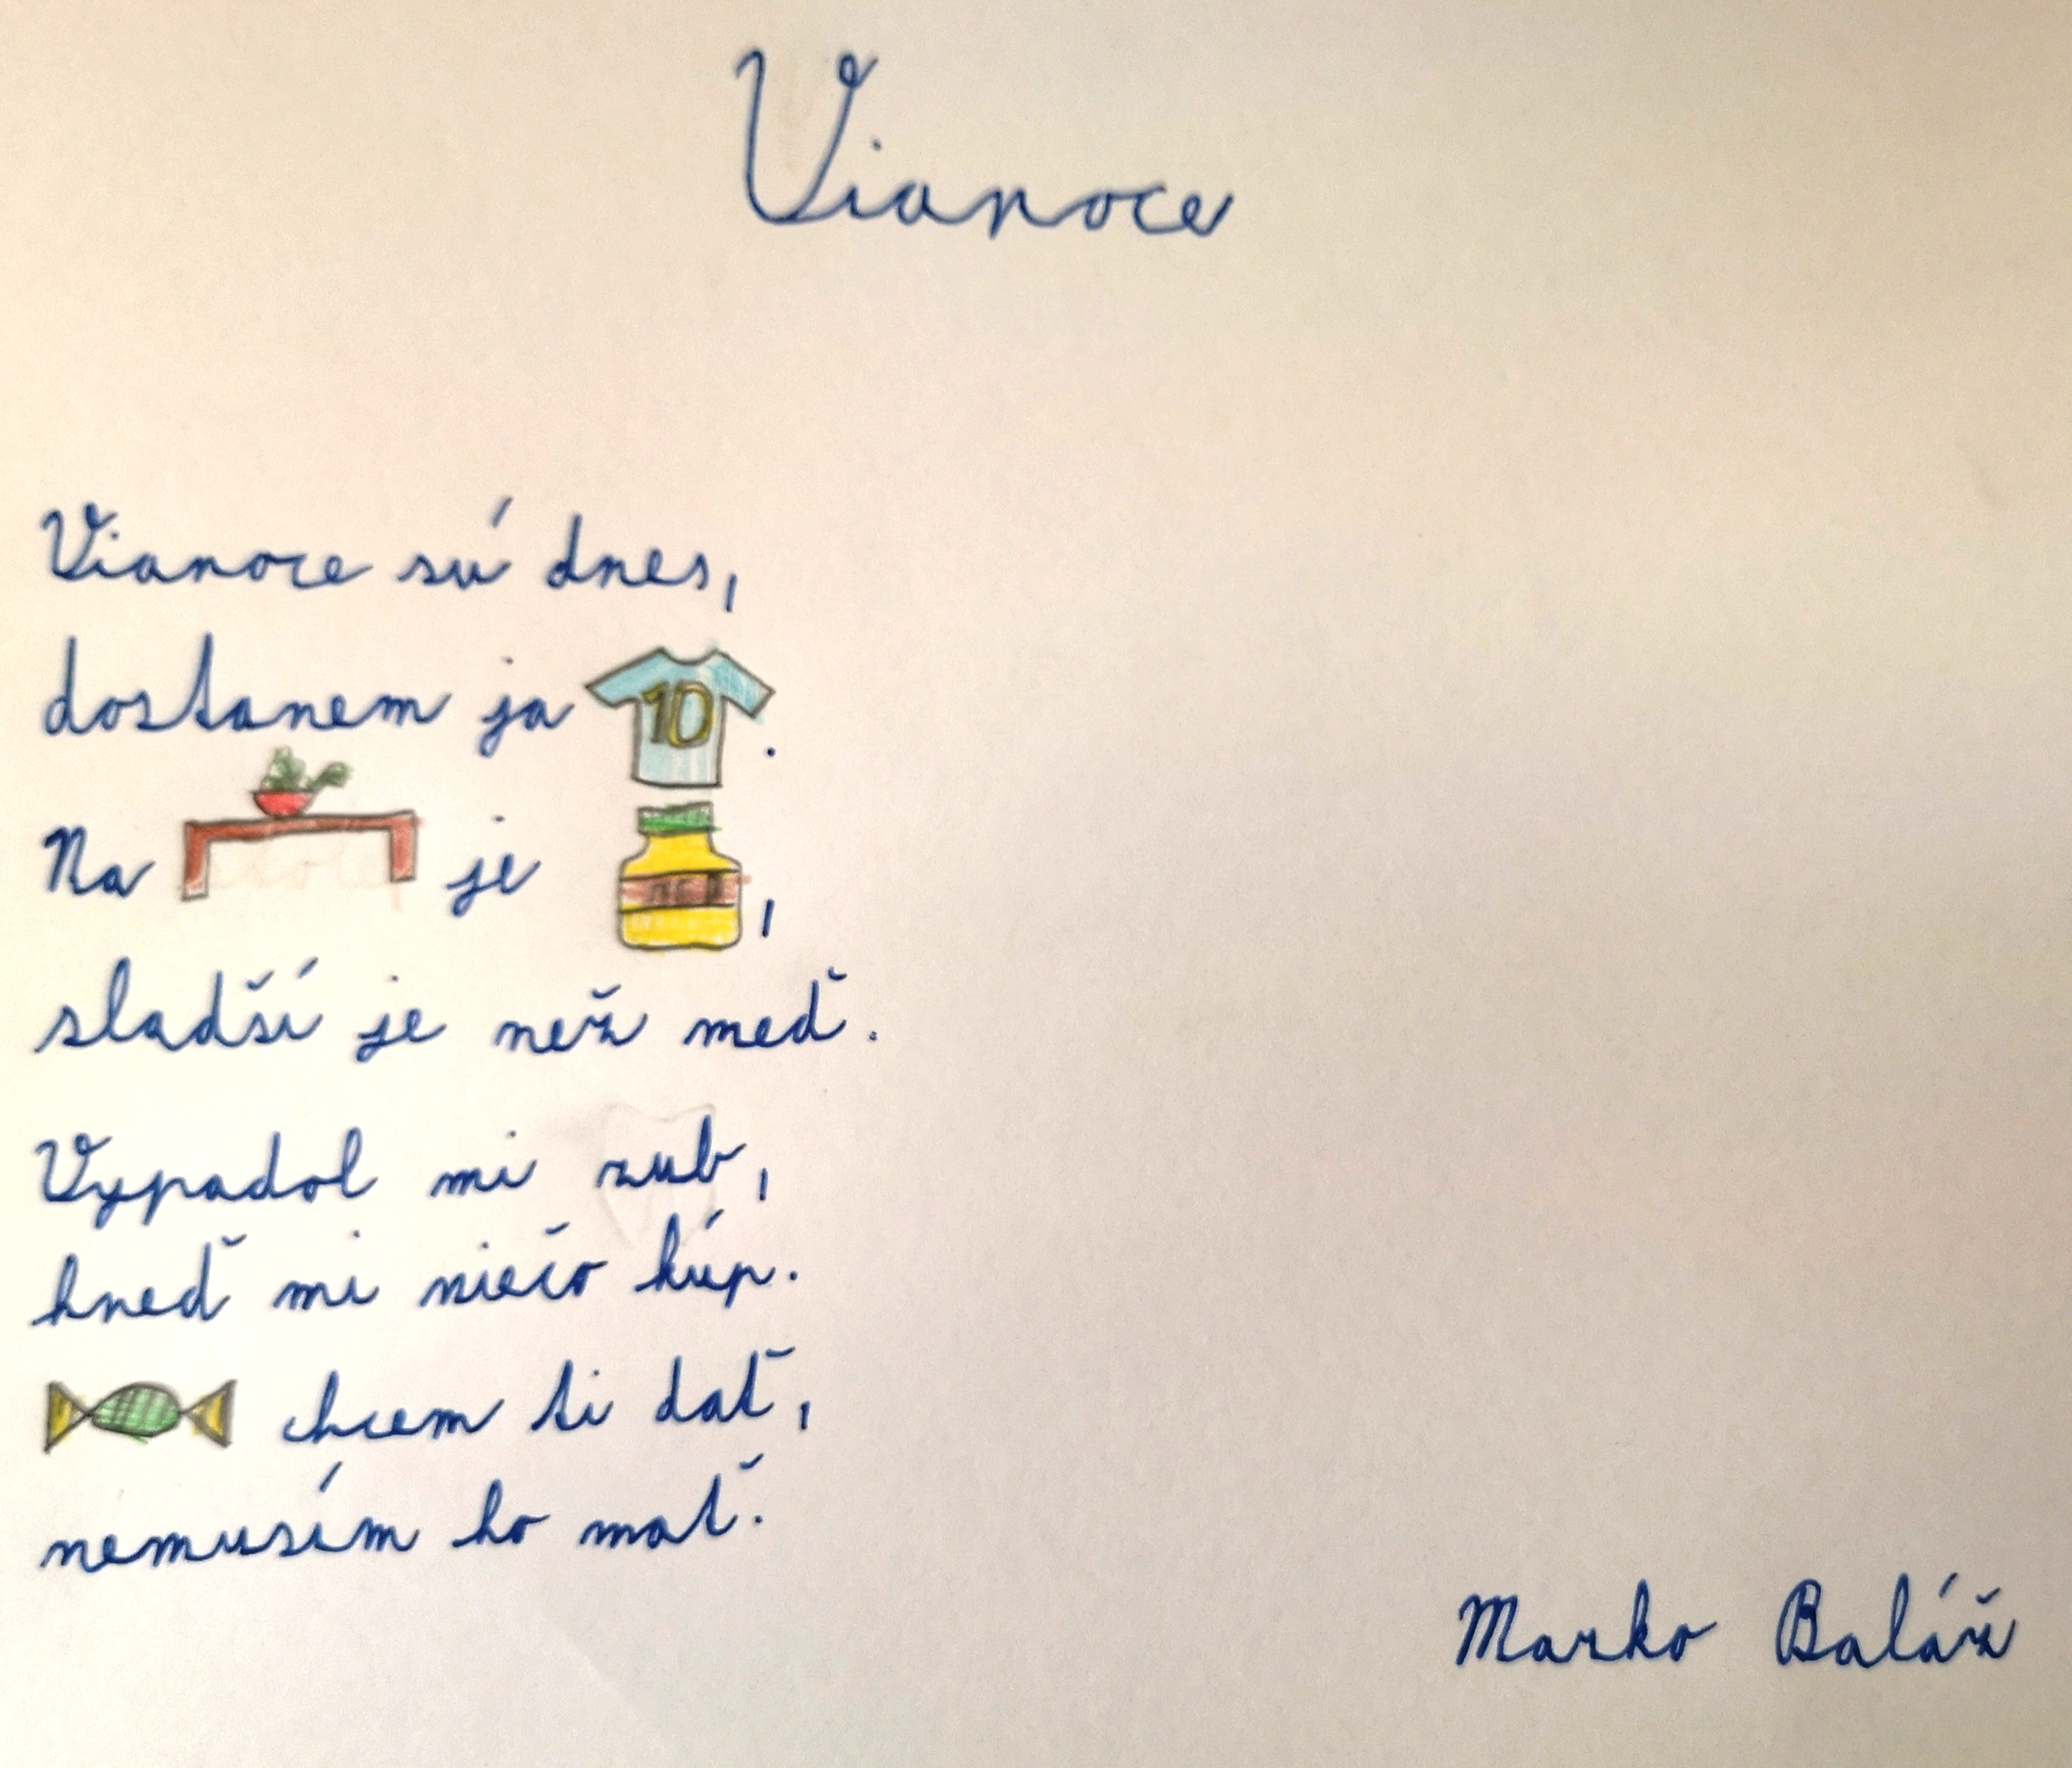 Vianoce
Vianoce sú dnes,
dostanem ja 10.
Na je ,
sladší je než meď.
Vypadol mi zub,
hneď mi niečo kúp.
chcem ti dať,
nemusím ho mať.
Marko Baláž